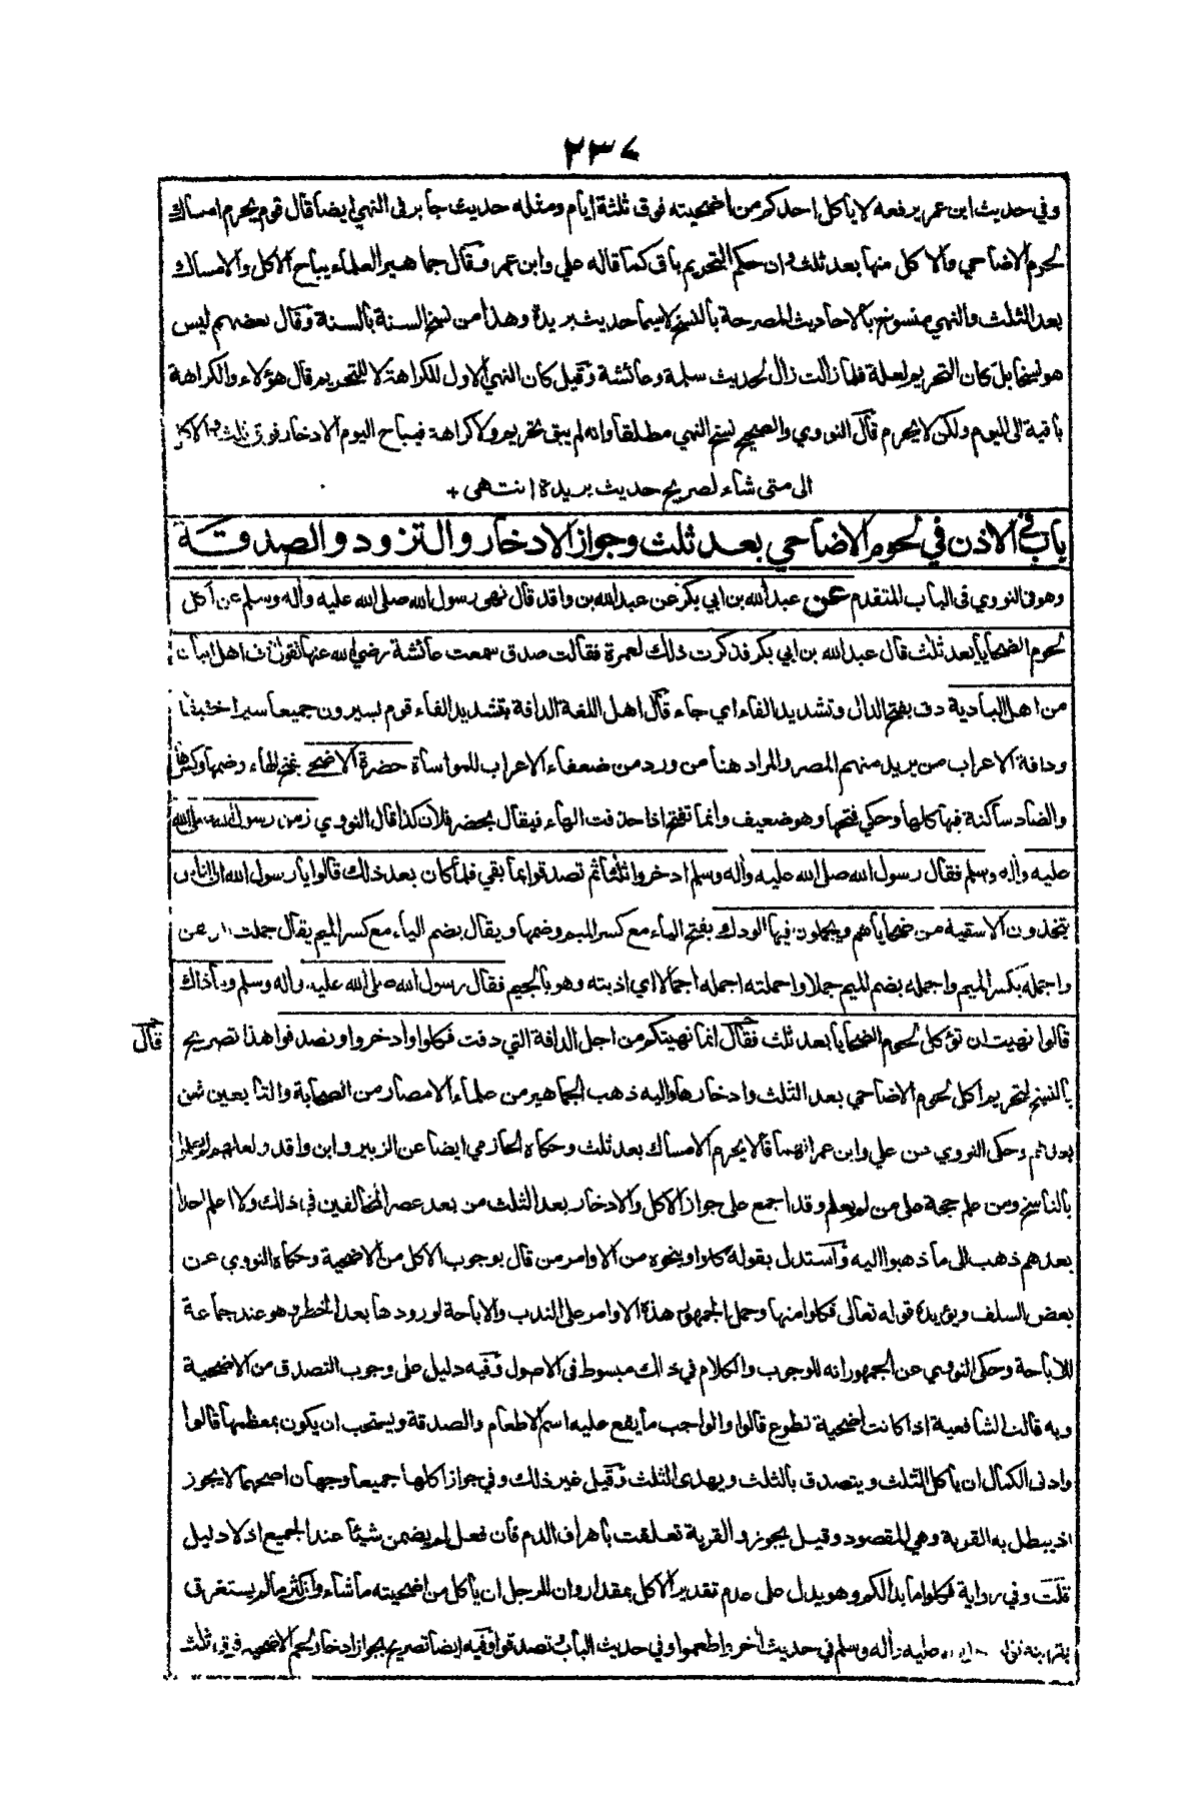 ٢٣٧
وفي حديث ابن عمر يرفعه لا يأكل احدكم من اضحيته فوق ثلثة ايام ومثله حديث جابر في النهي ايضا قال قوم يحرم امساك
لحوم الاضاحي والاكل منها بعد ثلث وان حكم التحريم باق كما قاله علي وابن عمر وقال جماهير العلماء يباح الاكل والامساك
بعد الثلث والنهي منسوخ بالاحاديث المصرحة بالنسخ لاسيما حديث بريدة وهذا من نسخ السنة بالسنة وقال بعضهم ليس
هو نسخا بل كان التحريم لعلة فلما زالت زال لحديث سلمة وعائشة وقيل كان النهي الاول للكراهة لا للتحريم قال هؤلاء والكراهة
باقية الى اليوم ولكن لا يحرم قال النووي والصحيح نسخ النهي مطلقا وانه لم يبق تحريم ولا كراهة فيباح اليوم الادخار فوق ثلث والاكل
الى متى شاء لصريح حديث بريدة انتهى +
باب في الاذن في لحوم الاضاحي بعد ثلث وجواز الادخار والتزود والصدقة
وهو في النووي في الباب المتقدم عن عبد الله بن ابي بكر عن عبد الله بن واقد قال نهى رسول الله صلى الله عليه وأله وسلم عن اكل
لحوم الضحايا بعد ثلث قال عبد الله بن ابي بكر فذكرت ذلك لعمرة فقالت صدق سمعت عائشة رضي الله عنها تقول دف اهل ابيات
من اهل البادية دف بفتح الدال وتشديد الفاء اي جاء قال اهل اللغة الدافة بتشديد الفاء قوم يسيرون جميعا سيرا خفيفا
ودافة الاعراب من يريد منهم المصر والمراد هنا من ورد من ضعفاء الاعراب للمواساة حضرة الاضحى بفتح الحاء وضمها وكسرها
والضاد ساكنة فيها كلها وحكي فتحها وهو ضعيف وانما تفتح اذا حذفت الهاء فيقال بحضر فلان كذا قال النووي زمن رسول الله صلى الله
عليه وأله وسلم فقال رسول الله صلى الله عليه وأله وسلم ادخروا ثلثا ثم تصدقوا بما بقي فلما كان بعد ذلك قالوا يا رسول الله ان الناس
يتخذون الاسقية من ضحاياهم ويجملون فيها الودك بفتح الياء مع كسر الميم وضمها ويقال بضم الياء مع كسر الميم يقال جملت الدهن
واجمله بكسر الميم واجمله بضم الميم جملا واجملته اجمله اجمالا اي اذبته وهو بالجيم فقال رسول الله صلى الله عليه وأله وسلم وما ذاك
قالوا نهيت ان تؤكل لحوم الضحايا بعد ثلث فقال انما نهيتكم من اجل الدافة التي دفت فكلوا وادخروا وتصدقوا هذا تصريح
بالنسخ لتحريم اكل لحوم الاضاحي بعد الثلث وادخارها واليه ذهب الجماهير من علماء الامصار من الصحابة والتابعين فمن
بعدهم وحكى النووي عن علي وابن عمر انهما قالا يحرم الامساك بعد ثلث وحكاه الحازمي ايضا عن الزبير وابن واقد ولعلهم لم يعلموا
بالناسخ ومن علم حجة على من لم يعلم وقد اجمع على جواز الاكل والادخار بعد الثلث من بعد عصر المخالفين في ذلك ولا اعلم احدا
بعدهم ذهب الى ما ذهبوا اليه واستدل بقوله كلوا ونحوه من الاوامر من قال بوجوب الاكل من الاضحية وحكاه النووي عن
بعض السلف ويؤيده قوله تعالى فكلوا منها وحمل الجمهور هذه الاوامر على الندب والاباحة لورودها بعد الحظر وهو عند جماعة
للاباحة وحكى النووي عن الجمهور انه للوجوب والكلام في ذلك مبسوط في الاصول وفيه دليل على وجوب التصدق من الاضحية
وبه قالت الشافعية اذا كانت اضحية تطوع قالوا والواجب ما يقع عليه اسم الاطعام والصدقة ويستحب ان يكون بمعظمها قالوا
وادنى الكمال ان يأكل الثلث ويتصدق بالثلث ويهدى الثلث وقيل غير ذلك وفي جواز اكلها جميعا وجهان اصحهما لا يجوز
اذ يبطل به القربة وهي المقصود وقيل يجوز والقربة تعلقت باهراق الدم فان فعل لم يضمن شيئا عند الجميع اذ لا دليل
قلت وفي رواية فكلوا ما بدا لكم وهو يدل على عدم تقدير الاكل بمقدار وان للرجل ان يأكل من اضحيته ما شاء وان كثر ما لم يستغرق
بقرينة قوله عليه وأله وسلم في حديث أخر واطعموا وفي حديث الباب وتصدقوا وفيه ايضا تصريح بجواز ادخار لحم الاضحية فوق ثلث
قال